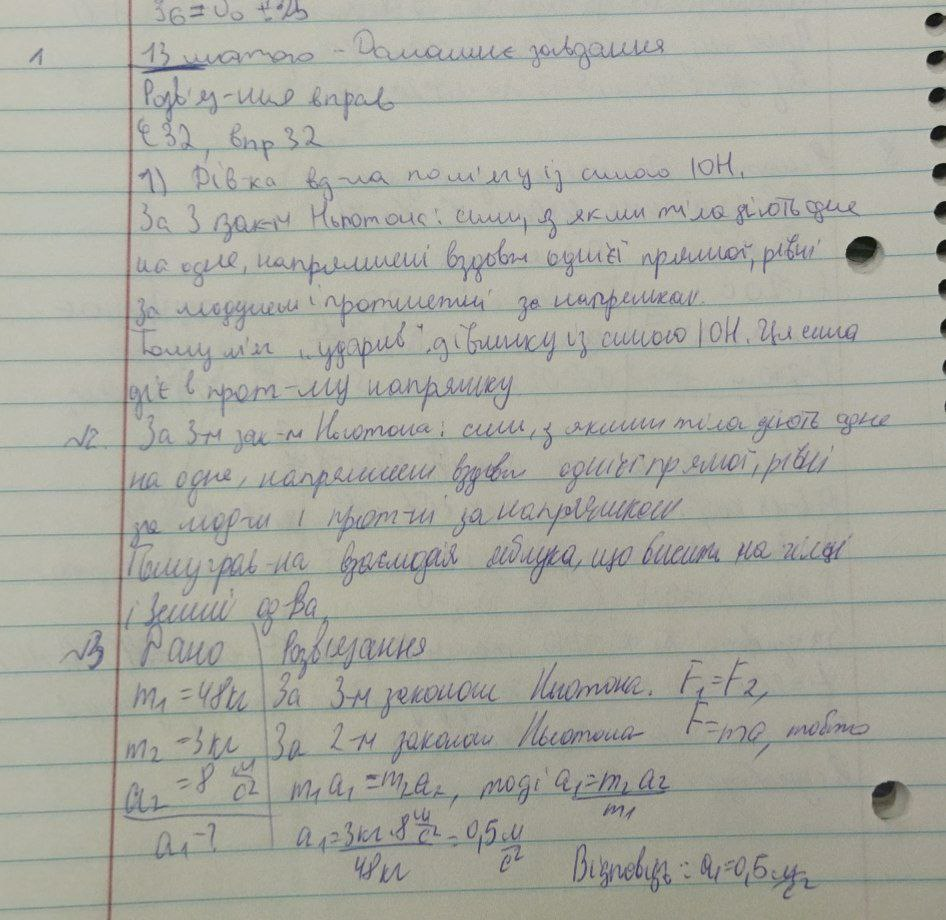 1 13 лютого - Домашнє завдання
Розв'яз-ння вправ
§32, впр 32
1) Дівч-ка вд-ла по м'ячу із силою 10Н.
За 3 зак-м Ньютона: сили, з якими тіла діють одне
на одне, напрямлені вздовж однієї прямої, рівні
за модулем і протилежні за напрямком.
Тому м'яч „ударив" дівчинку із силою 10Н. Ця сила
діє в прот-му напрямку
№2. За 3-м зак-м Ньютона: сили, з якими тіла діють одне
на одне, напрямлені вздовж однієї прямої, рівні
за мод-м і прот-ні за напрямком
Тому грав-на взаємодія яблука, що висить на гілці
і Землі од-ва,
№3 Дано Розв'язання
m₁ = 48кг За 3-м законом Ньютона. F₁ = F₂,
m₂ = 3кг За 2-м законом Ньютона F=ma, тобто
a₂ = 8 м/с² m₁a₁ = m₂a₂, тоді a₁ = m₂a₂/m₁
a₁ - ? a₁ = 3кг·8 м/с²/48кг = 0,5 м/с²
Відповідь: a₁=0,5 м/с²